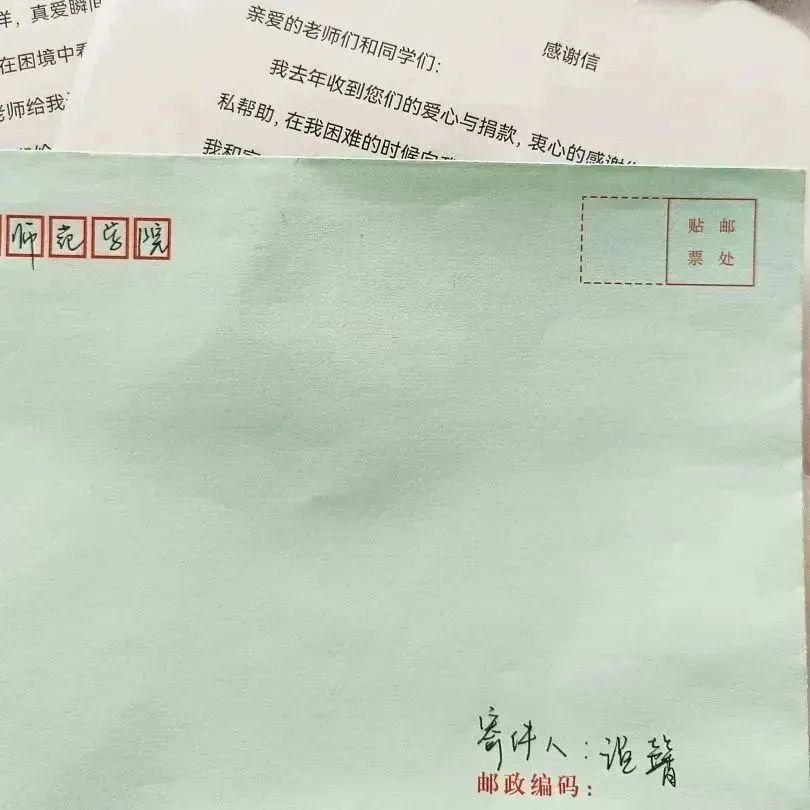 样，真爱瞬间
在困境中看
老师给我
感谢信
亲爱的老师们和同学们：
我去年收到您们的爱心与捐款，衷心的感谢
私帮助，在我困难的时候向我
我和家
师范学院
贴邮
票处
寄件人：温馨
邮政编码：